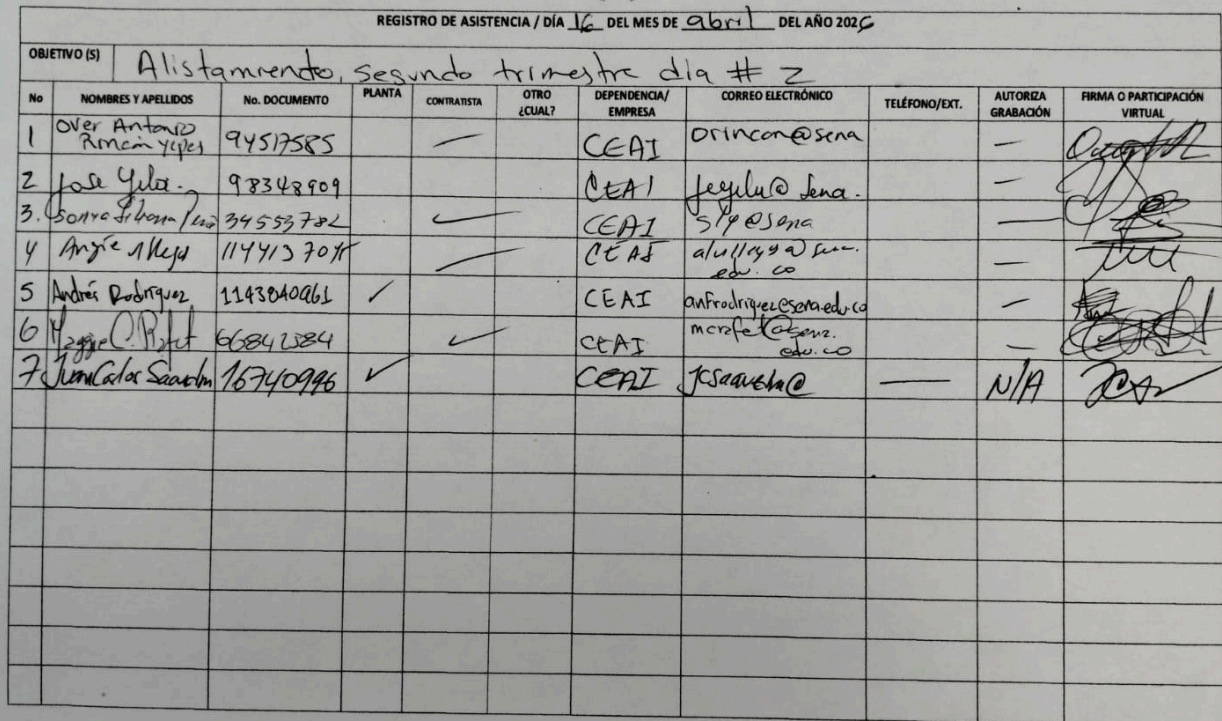 REGISTRO DE ASISTENCIA / DÍA 16 DEL MES DE abril DEL AÑO 2026
OBJETIVO (S) Alistamiento, segundo trimestre dia # 2
No NOMBRES Y APELLIDOS No. DOCUMENTO PLANTA CONTRATISTA OTRO ¿CUAL? DEPENDENCIA/ EMPRESA CORREO ELECTRÓNICO TELÉFONO/EXT. AUTORIZA GRABACIÓN FIRMA O PARTICIPACIÓN VIRTUAL
1 Over Antonio Rincón Yepes 94517585 — CEAI orincon@sena —
2 Jose 98348909 CEAI @sena. —
3. Sonia 34553782 CEAI @sena —
4 Angie CEAI edu.co —
5 Andrés Rodríguez 1143840961 ✓ CEAI anfrodriguez@sena.edu.co —
6 C. CEAI edu.co —
7 Juan Carlos Saavedra 16740996 ✓ CEAI jcsaavedra@ — N/A